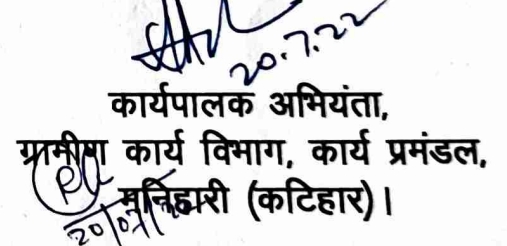 20.7.22
कार्यपालक अभियंता,
ग्रामीण कार्य विभाग, कार्य प्रमंडल,
मनिहारी (कटिहार)।